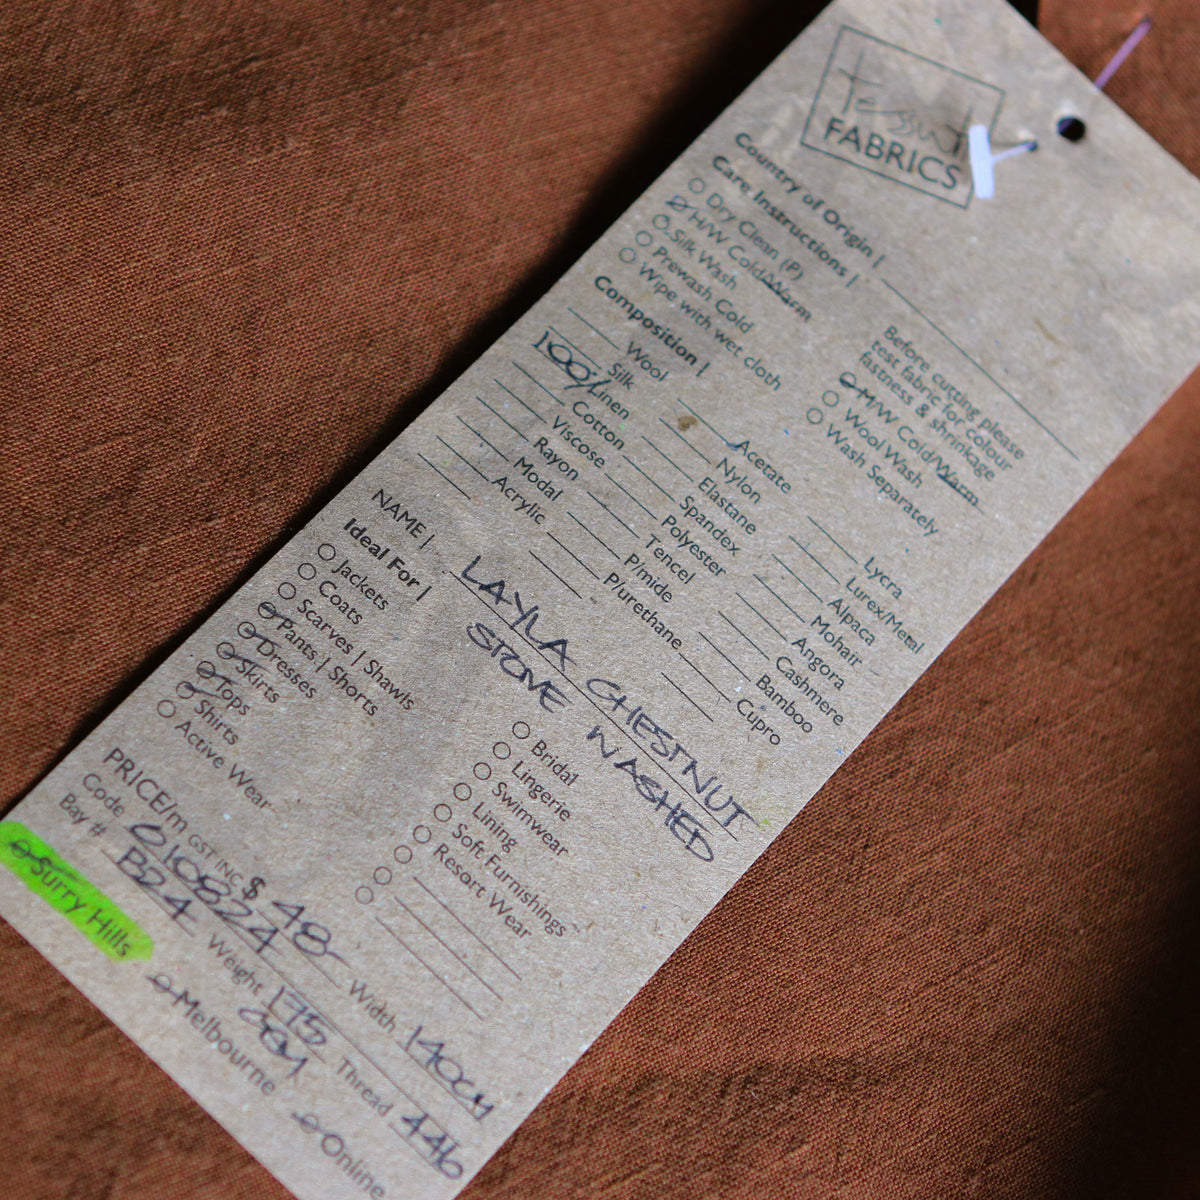 Tessuti
FABRICS
Country of Origin |
Care Instructions |
Dry Clean (P)
H/W Cold/Warm
Silk Wash
Prewash Cold
Wipe with wet cloth
Before cutting please
test fabric for colour
fastness & shrinkage
M/W Cold/Warm
Wool Wash
Wash Separately
Composition |
Wool
Silk
100% Linen
Cotton
Viscose
Rayon
Modal
Acrylic
Acetate
Nylon
Elastane
Spandex
Polyester
Tencel
P/mide
P/urethane
Lycra
Lurex/Metal
Alpaca
Mohair
Angora
Cashmere
Bamboo
Cupro
NAME | LAYLA CHESTNUT
STONE WASHED
Ideal For |
Jackets
Coats
Scarves | Shawls
Pants | Shorts
Dresses
Skirts
Tops
Shirts
Active Wear
Bridal
Lingerie
Swimwear
Lining
Soft Furnishings
Resort Wear
PRICE/m GST INC $ 48- Width 140CM
Code 010824 Weight 175 GSM Thread 446
Bay # B24
Surry Hills Melbourne Online